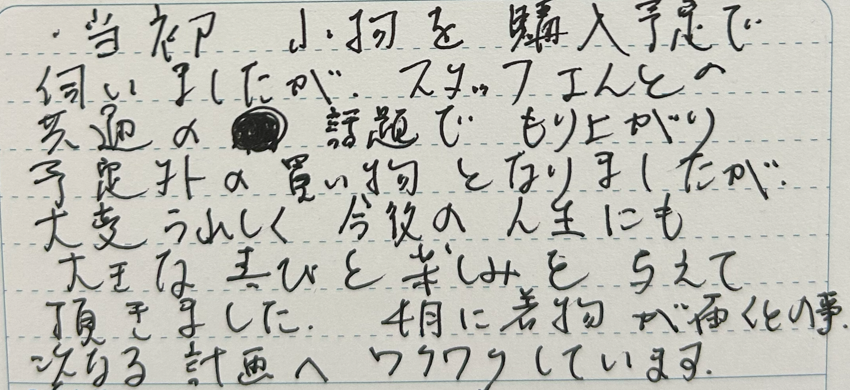 ・当初 小物を購入予定で
伺いましたが、スタッフさんとの
共通の 話題で もり上がり
予定外の買い物となりましたが、
大変うれしく 今後の人生にも
大きな喜びと楽しみを与えて
頂きました. 4月に着物が届くとの事.
次なる計画へワクワクしています.